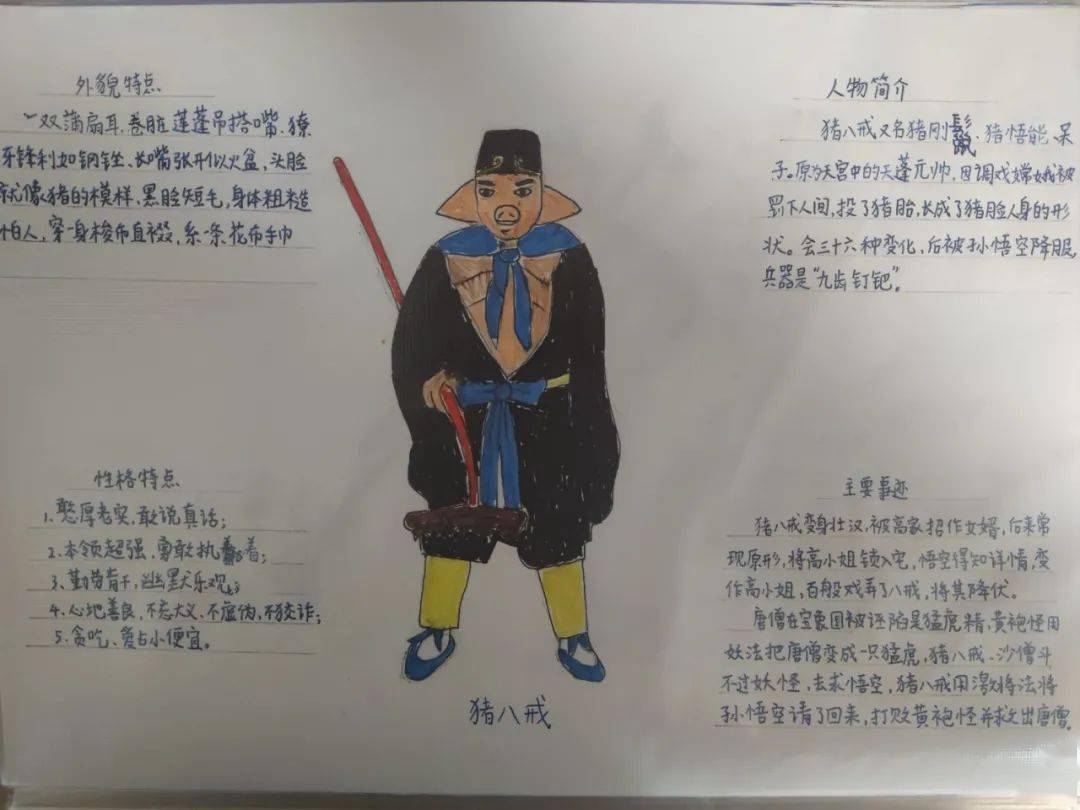 外貌特点
一双蒲扇耳,卷脏莲蓬吊搭嘴、獠
牙锋利如钢锉、长嘴张开似火盆,头脸
就像猪的模样,黑脸短毛,身体粗糙
怕人,穿一身梭布直裰,系一条花布手巾
人物简介
猪八戒又名猪刚鬣、猪悟能、呆
子。原为天宫中的天蓬元帅,因调戏嫦娥被
罚下人间,投了猪胎,长成了猪脸人身的形
状。会三十六种变化,后被孙悟空降服,
兵器是“九齿钉钯”。
性格特点
1、憨厚老实,敢说真话;
2、本领超强,勇敢执着;
3、勤劳肯干,幽默乐观;
4、心地善良,不忘大义、不虚伪,不狡诈;
5、贪吃、爱占小便宜。
主要事迹
猪八戒变身壮汉,被高家招作女婿,后来常
现原形,将高小姐锁入宅,悟空得知详情,变
作高小姐,百般戏弄了八戒,将其降伏。
唐僧在宝象国被诬陷是猛虎精,黄袍怪用
妖法把唐僧变成一只猛虎,猪八戒、沙僧斗
不过妖怪,去求悟空,猪八戒用激将法将
孙悟空请了回来,打败黄袍怪并救出唐僧。
猪八戒